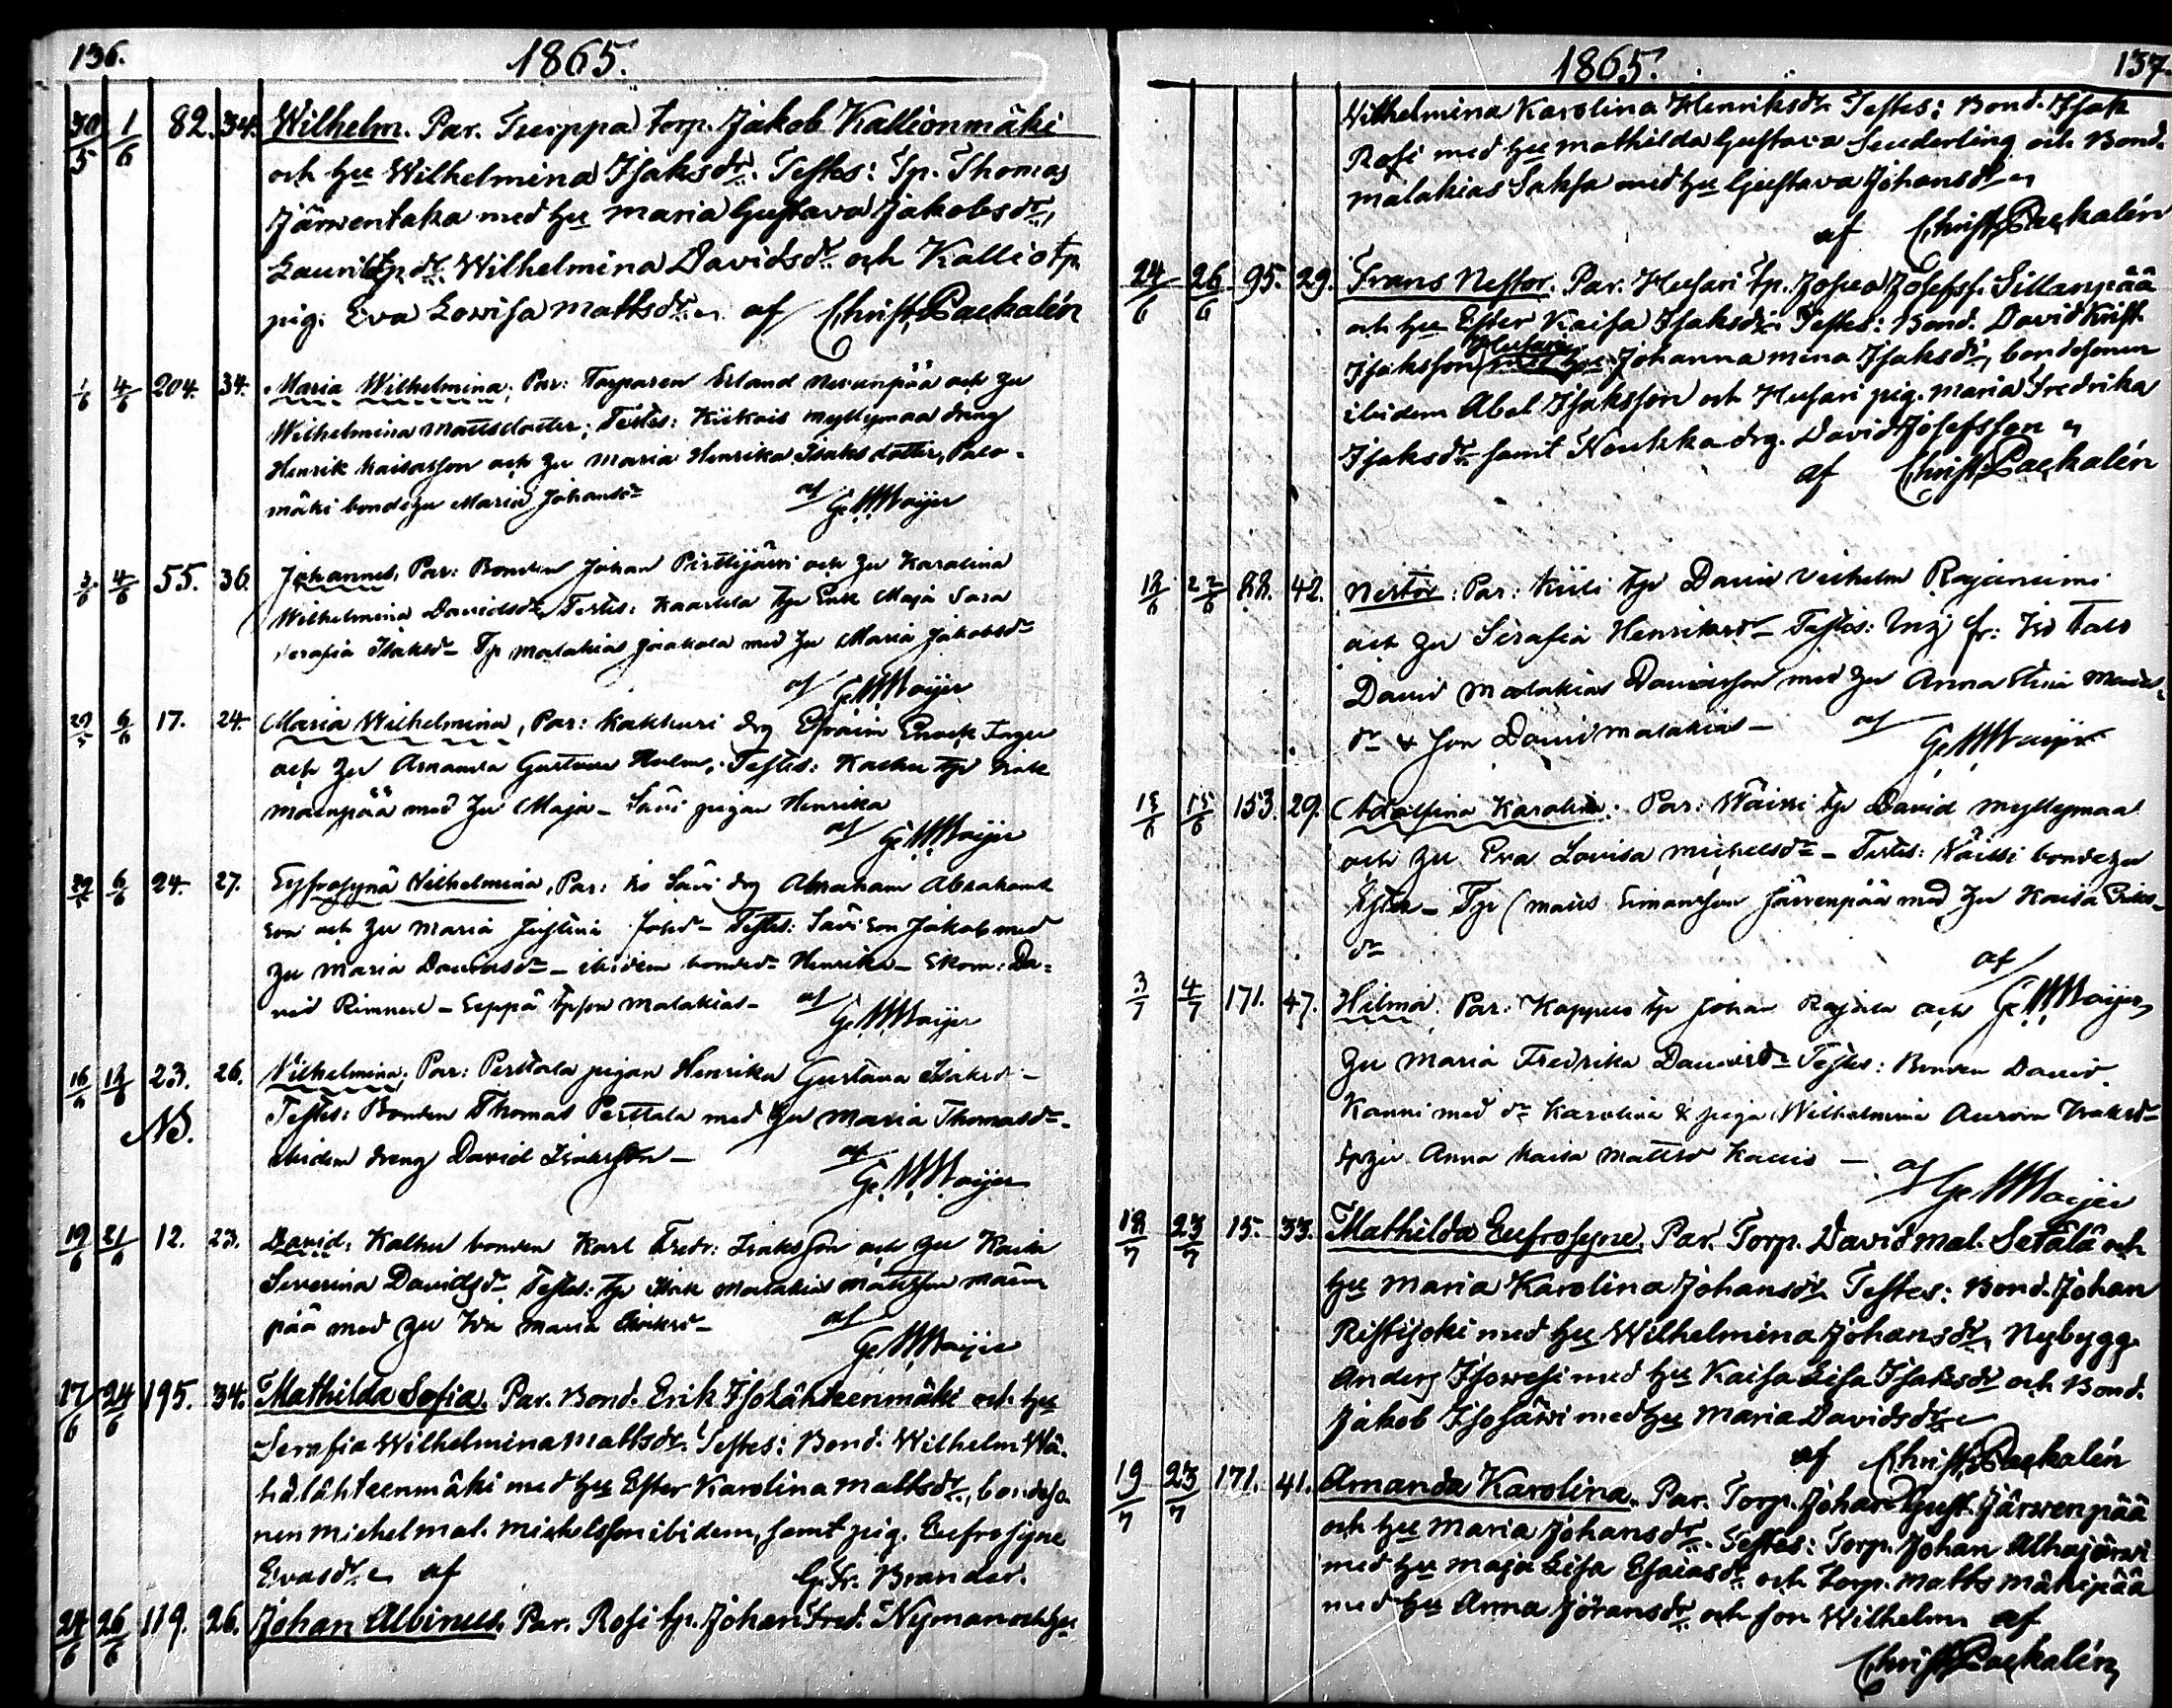 136.
1865.
30/5 1/6 82. 34. Wilhelm. Par. Turppa torp. Jakob Kallionmäki
och hu Wilhelmina Isaksdr. Testes: Tp. Thomas
Järwentaka med hu Maria Gustava Jakobsdr,
Laurila tp. dr. Wilhelmina Davidsdr. och Kallio tp.
pig. Eva Lovisa Mattsdr. af Christ. Packalén
1/6 4/6 204. 34. Maria Wilhelmina; Par: Torparen Erland Nevanpää och hu
Wilhelmina Mattsdotter; Testes: Kiikois Myllymaa dräng
Henrik Kaisasson och hu Maria Henrika Isaksdotter, Palo-
mäki bondehu Maria Johansdr af G. M. Waijer
3/6 4/6 55. 36. Johannes, Par: Bonden Johan Pirttijärvi och hu Karolina
Wilhelmina Davidsdr, Testes: Kaartila tp Enk Maja Sara
Serafia Isaksdr Tp Malakias Jaakola med hu Maria Jakobsdr
af G. M. Waijer
29/5 6/6 17. 24. Maria Wilhelmina, Par: Kakkuri drg Efraim Enock
och hu Amanda Gustava Holm, Testes: tp Isak
Mäenpää med hu Maja - Sävi pigan Henrika
af G. M. Waijer
29/5 6/6 24. 27. Eyfrosynä Wilhelmina, Par: Sävi drg Abraham Abrahams
son och hu Maria Justina Johsd - Testes: Sävi son Jakob med
hu Maria Davidsdr - ibidem bondedr Henrika - Skom: Da-
vid Rimned - Seppä tp son Malakias - af G. M. Waijer
16/6 18/6 23. 26. Wilhelmina; Par: Perttala pigan Henrika Gustava Isaksd -
NB. Testes: Bonden Thomas Perttala med hu Maria Thomasdr -
ibidem dreng David Isaksson -
af G. M. Waijer
19/6 21/6 12. 23. David: bonden Karl Fredr: Isaksson och hu
Severina Davidsdr, Testes: tp Isak Malakias Mattsson Mäen
pää med hu Ida Maria
af G. M. Waijer
17/6 24/6 195. 34. Mathilda Sofia. Par. Bond. Erik Isolähteenmäki och hu
Serafia Wilhelmina Mattsdr. Testes: Bond. Wilhelm Wä-
hälähteenmäki med hu Ester Karolina Mattsdr., bondeso-
nen Michel Mal. Michelsson ibidem, samt pig. Eufrosyne
Evasdr. af G. Fr. Brander.
24/6 26/6 119. 26. Johan Albinus. Par. Rosi tp. Johan Fred. Nyman och hu
1865.
137.
Wilhelmina Karolina Henriksdr. Testes: Bond. Isak
Rosi med hu Mathilda Gustava Seuderling och Bond.
Malakias Saksa med hu Gustava Johansdr
af Christ. Packalén
24/6 26/6 95. 29. Frans Nestor. Par. Husari tp. Josua Josefss. Sillanpää
och hu Ester Kaisa Isaksdr. Testes: Bond. David Krist.
Husari
Isaksson, Johanna Mina Isaksdr, bondesonen
ibidem Abel Isaksson och Husari pig. Maria Fredrika
Isaksdr. samt Koukka drg. David Josefsson
af Christ. Packalén
18/6 22/6 88. 42. Nestor: Par: Kiili tp David Vilhelm Rajaniemi
och hu Serafia Henriksdr - Testes: fr: Iso Talo
David Malakias Davidsson med hu Anna Stina
dr & son David Malakias - af
G. M. Waijer
15/6 15/6 153. 29. Adolfina Karolin: Par: Wäiski tp David Myllymaa
och hu Eva Lovisa Michelsdr - Testes: bondehu
Ester - Tp Simonsson Järvenpää med hu Kaisa Eriks-
dr af
G. M. Waijer
3/7 4/7 171. 47. Hilma. Par: Kappus tp Johan Rajala och
hu Maria Fredrika Davidsdr Testes: Bonden David
Kanni med dr Karolina & piga Wilhelmina Aurora Isaksdr
tp hu Anna Kaisa Mattsd - af
G. M. Waijer
18/7 23/7 15. 33. Mathilda Eufrosyne. Par. Torp. David Mal. Setälä och
hu Maria Karolina Johansdr. Testes: Bond. Johan
Ristijoki med hu Wilhelmina Johansdr., Nybygg.
Anders Isowesi med hu Kaisa Lisa Isaksdr och Bond.
Jakob Isosäwi med hu Maria Davidsdr.
af Christ. Packalén
19/7 23/7 171. 41. Amanda Karolina. Par. Torp. Johan Gust. Järwenpää
och hu Maria Johansdr. Testes: Torp. Johan Alhajärwi
med hu Maja Lisa Esaiasdr. och torp. Matts Mäkipää
med hu Anna Jöransdr. och son Wilhelm af
Christ. Packalén